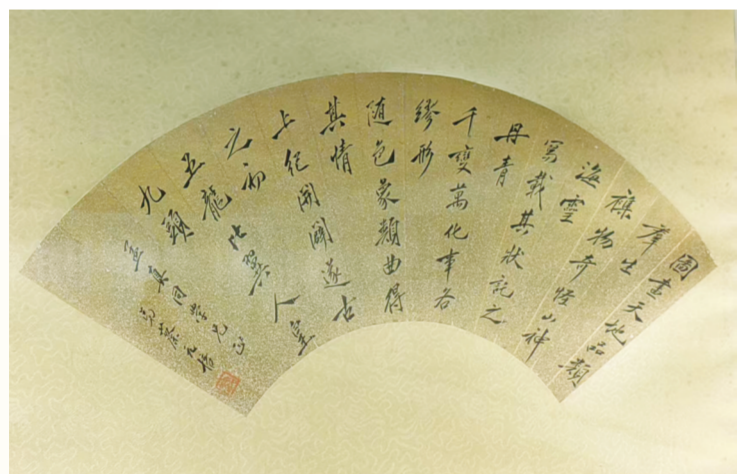 圖畫天地品類
羣生
雜物奇怪山神
海靈
寫載其狀託之
丹青
千變萬化事各
繆形
隨色象類曲得
其情
上紀開闢遂古
之初
五龍比翼人皇
九頭
孟真同學兄正
弟蔡元培